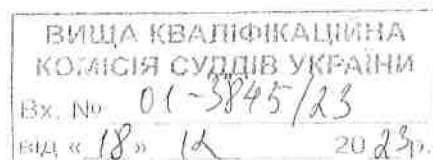 ВИЩА КВАЛІФІКАЦІЙНА
КОМІСІЯ СУДДІВ УКРАЇНИ
Вх. № 01-3845/23
від « 18 » 12 2023р.